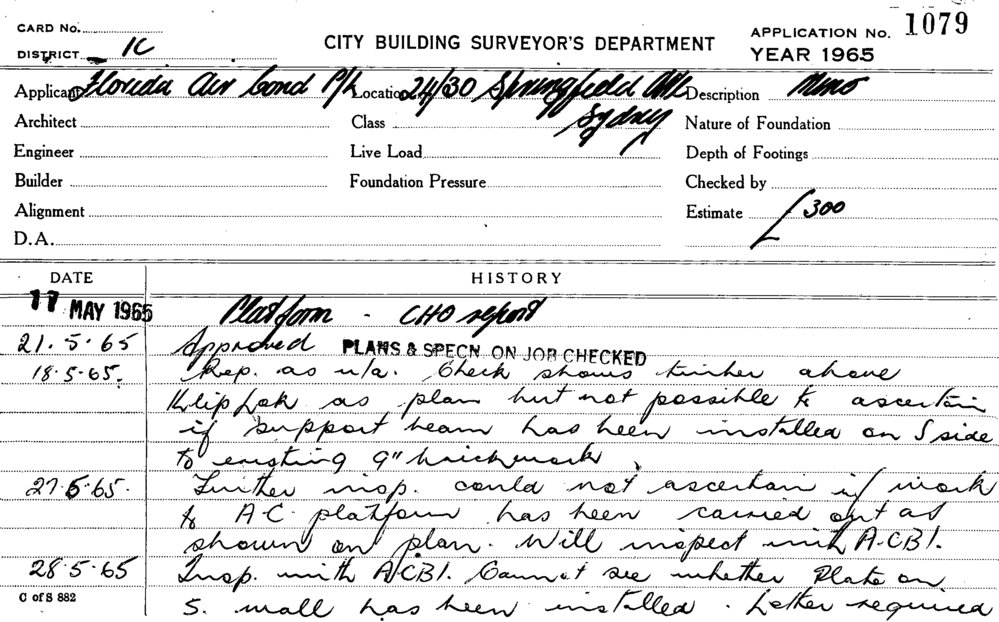 CARD No.
DISTRICT 1C
CITY BUILDING SURVEYOR'S DEPARTMENT
APPLICATION No. 1079
YEAR 1965
Applicant Florida Air Cond P/L Location 24/30 Springfield Ave Description Mino
Architect Class Sydney Nature of Foundation
Engineer Live Load Depth of Footings
Builder Foundation Pressure Checked by
Alignment Estimate £300
D.A.
DATE HISTORY
17 MAY 1965 Platform - CHO report
21.5.65 Approved PLANS & SPECN ON JOB CHECKED
18.5.65. Rep. as u/a. Check shows timber above
Klip Lok as plan but not possible to ascertain
if support beam has been installed on S side
to existing 9" brickwork.
27.5.65. Further insp. could not ascertain if work
to A-C platform has been carried out as
shown on plan. Will inspect with A.CBI.
28.5.65 Insp. with A/CBI. Cannot see whether Plate on
C of S 882
S. wall has been installed. Letter required